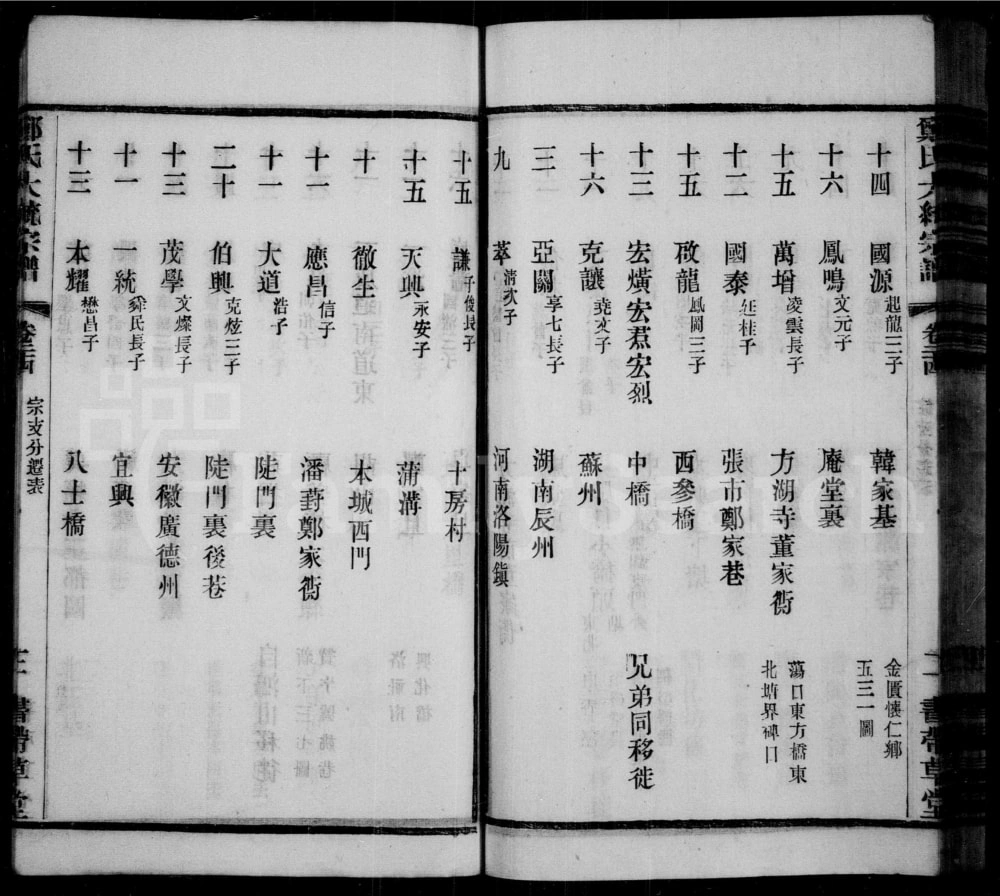 鄭氏大統宗譜 卷三十四 二 書帶草堂
十四 國源 起龍三子 韓家基 金匱懷仁鄉 五三一圖
十六 鳳鳴 文元子 庵堂裏
十五 萬增 凌雲長子 方湖寺董家衖 蕩口東方橋東 北塘界碑口
十二 國泰 廷桂子 張市鄭家巷
十五 啟龍 鳳岡三子 西參橋
十三 宏熿宏焄宏烈 中橋 兄弟同移徙
十六 克讓 堯文子 蘇州
三十 亞關 享七長子 湖南辰州
九 萃 清次子 河南洛陽鎮
十五 謙 子俊長子 十房村
十五 天興 永安子 蒲溝
十一 徹生 本城西門
十一 應昌 信子 潘葑鄭家衖
十一 大道 浩子 陡門裏
二十 伯興 克炫三子 陡門裏後巷
十三 茂學 文燦長子 安徽廣德州
十一 一統 舜民長子 宜興
十三 本耀 懋昌子 八士橋
鄭氏大統宗譜 宗支分遷表 三 書帶草堂